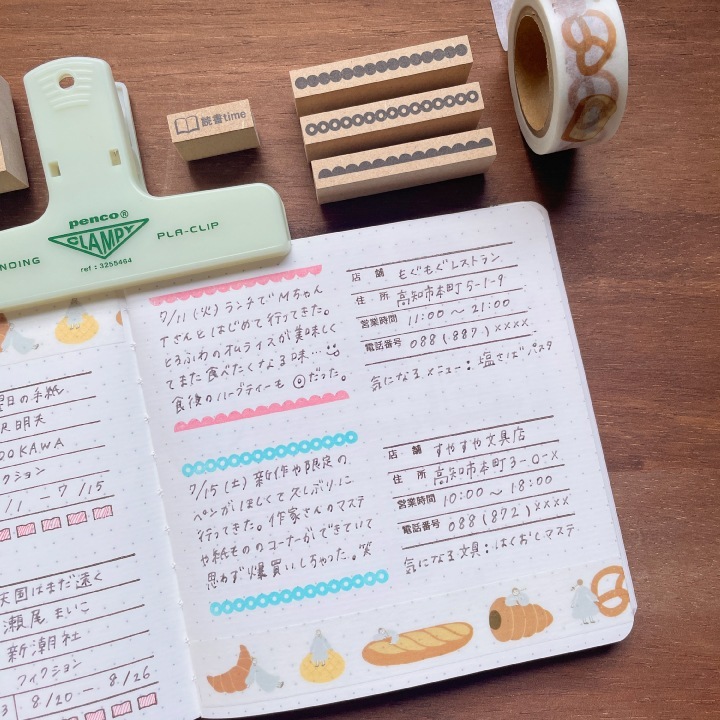 読書time
penco®
CLAMPY
PLA-CLIP
ref : 3255464
7/11 (火) ランチでMちゃん
Tさんとはじめて行ってきた。
とろふわのオムライスが美味しく
てまた食べたくなる味…
食後のハーブティーも◎だった。
店舗 もぐもぐレストラン
住所 高知市本町5-1-9
営業時間 11:00 〜 21:00
電話番号 088 (887) ××××
気になるメニュー：塩さばパスタ
7/15 (土) 新作や限定の
ペンがほしくて久しぶりに
行ってきた。作家さんのマステ
や紙もののコーナーができていて
思わず爆買いしちゃった。笑
店舗 すやすや文具店
住所 高知市本町3-0-×
営業時間 10:00 〜 18:00
電話番号 088 (872) ××××
気になる文具：はくおしマステ
曜日の手紙
沢明夫
DOKAWA
クション
/11 — 7/15
天国はまだ遠く
瀬尾まいこ
新潮社
フィクション
8/20 — 8/26